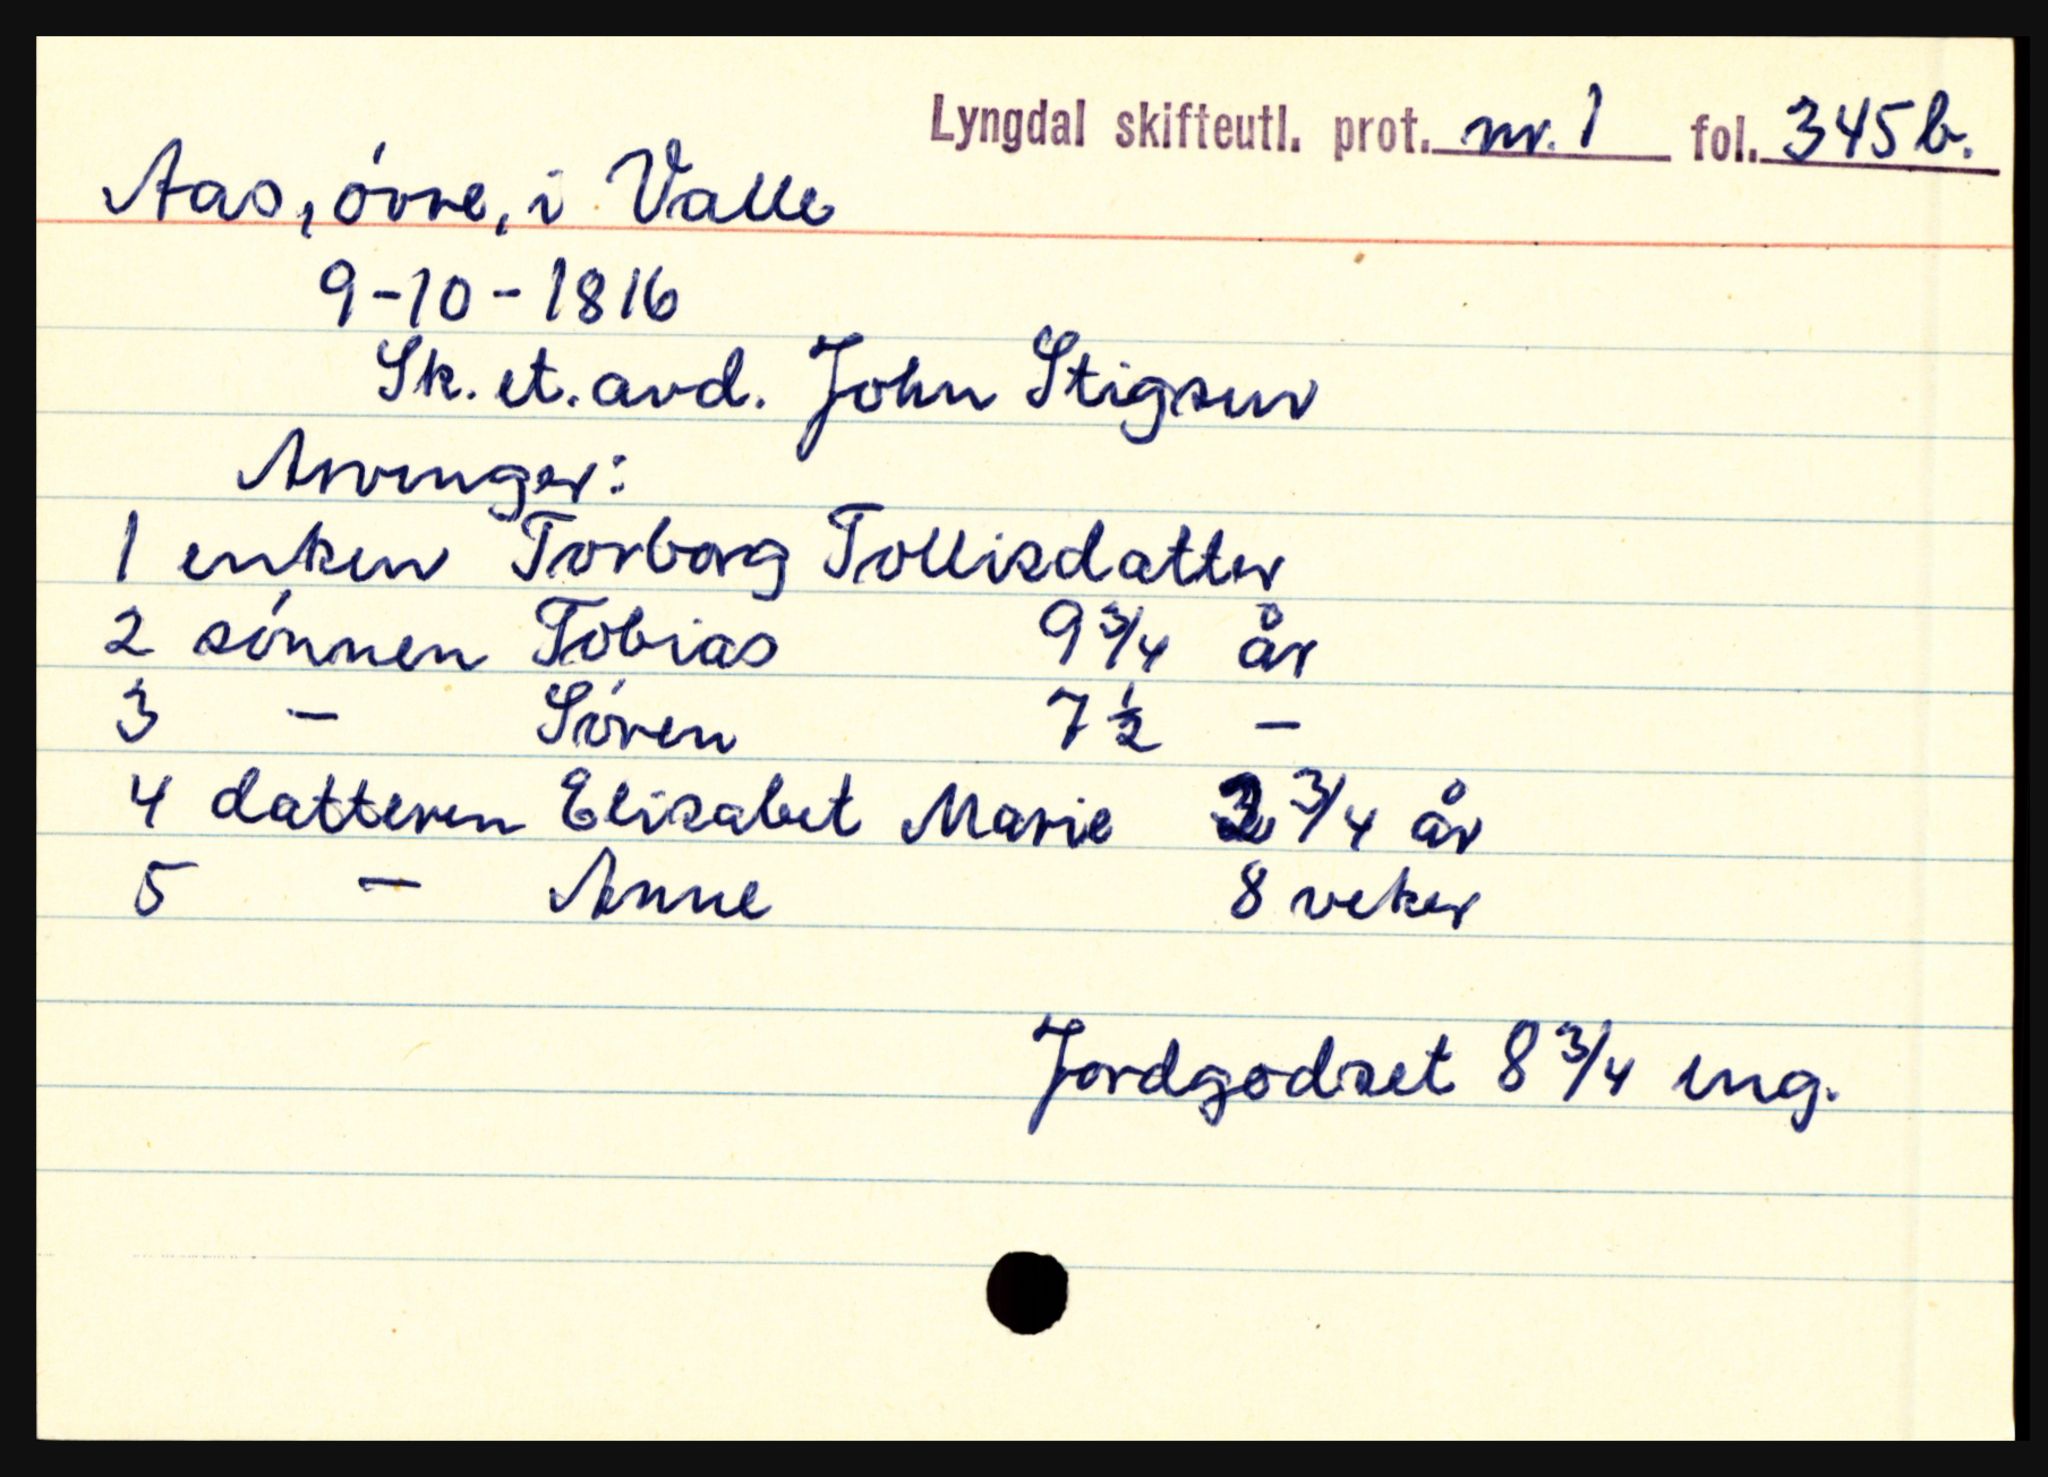 Lyngdal skifteutl. prot. nr. 1 fol. 345b.
Aas, óvre, i Valle
9-10-1816
Sk. et. avd. John Stigsen
Arvinger:
1 enken Torborg Tollisdatter
2 sónnen Tobias 9 3/4 år
3 - Sóren 7 1/2 -
4 datteren Elisabet Marie 3/4 år
5 - Anne 8 veker
Jordgodset 8 3/4 eng.